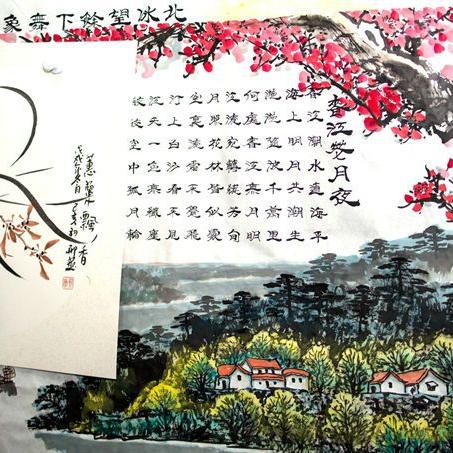 北冰望餘下舞象
春江花月夜
春江潮水連海平
海上明月共潮生
灩灩隨波千萬里
何處春江無月明
江流宛轉繞芳甸
月照花林皆似霰
空裏流霜不覺飛
汀上白沙看不見
江天一色無纖塵
皎皎空中孤月輪
蕙蘭飄香